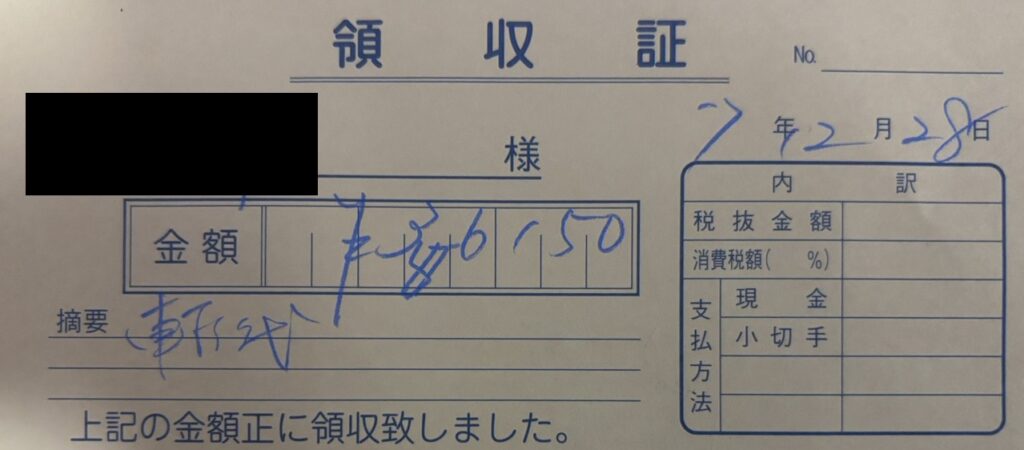 領収証
No.
様
7年12月28日
金額 ¥36,150
摘要
上記の金額正に領収致しました。
内訳
税抜金額
消費税額( %)
支払方法
現金
小切手